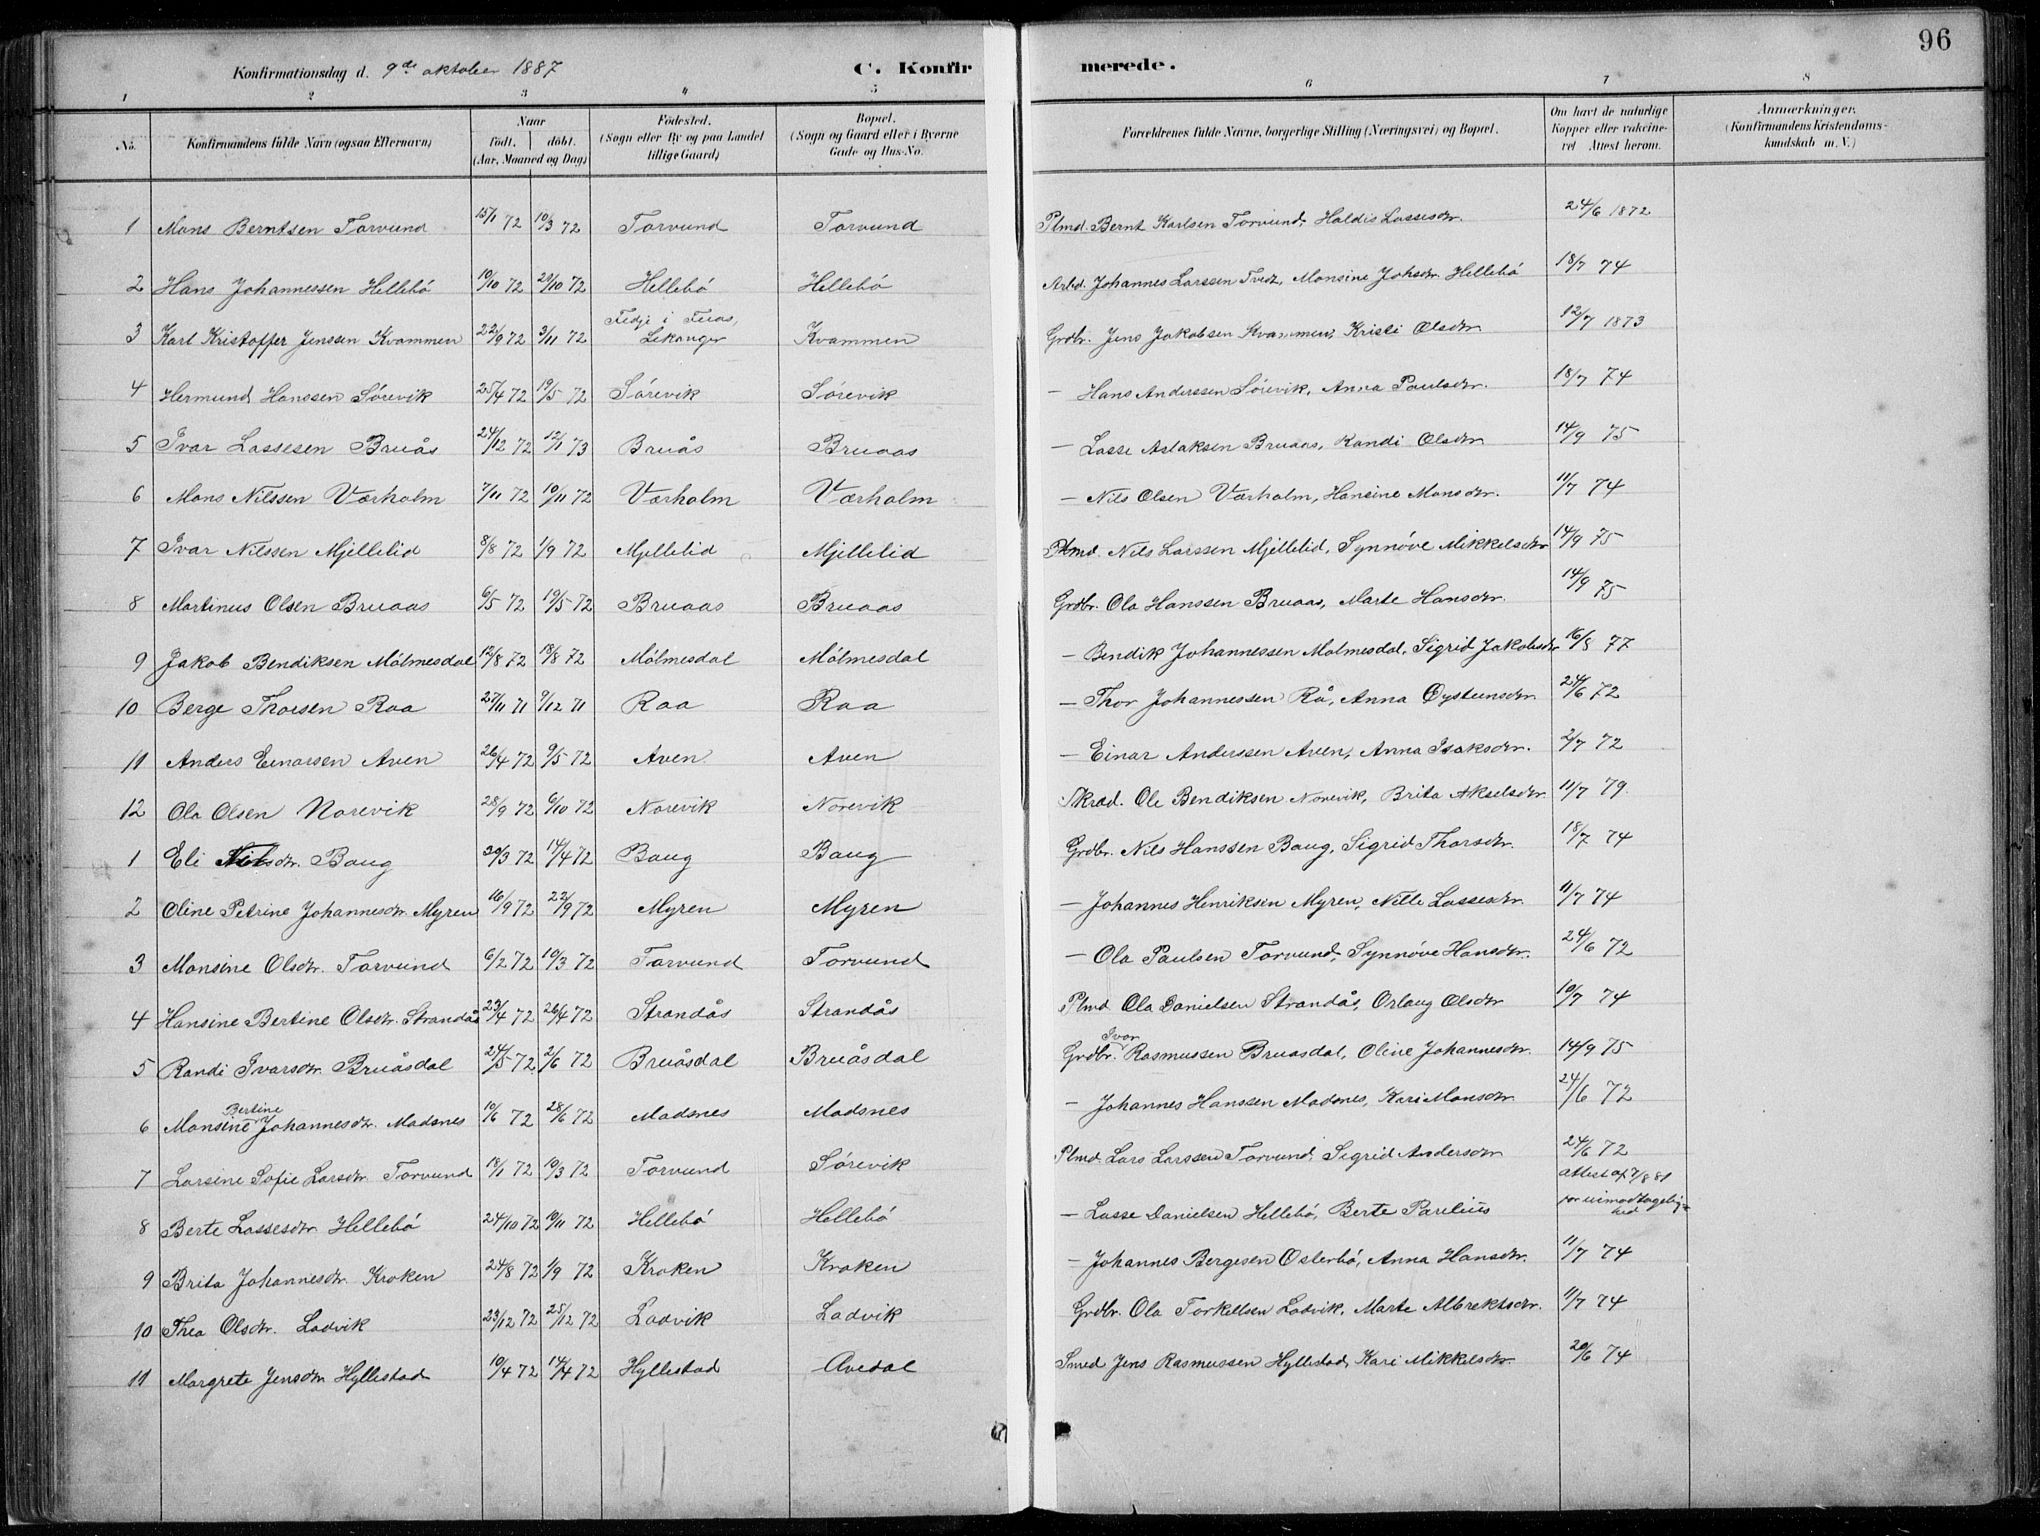 96
Konfirmationsdag d. 9de oktober 1887 C. Konfirmerede.
1 2 3 4 5 6 7 8
No. Konfirmandens fulde Navn (ogsaa Efternavn) Naar født. døbt. (Aar, Maaned og Dag) Fødested. (Sogn eller By og paa Landet tillige Gaard) Bopæl. (Sogn og Gaard eller i Byerne Gade og Hus-No. Forældrenes fulde Navne, borgerlige Stilling (Næringsvei) og Bopæl. Om havt de naturlige Kopper eller vakcineret Attest herom. Anmærkninger. (Konfirmandens Kristendomskundskab m. V.)
1 Mons Berntsen Torvund 15/1 72 10/3 72 Torvund Torvund Plmd. Bernt Karlsen Torvund, Haldis Lassesdr. 24/6 1872
2 Hans Johannessen Hellebö 10/10 72 20/10 72 Hellebö Hellebö Arbd. Johannes Larssen Tvedt, Monsine Johsdr. Hellebö 18/7 74
3 Karl Kristoffer Jenssen Kvammen 22/9 72 3/11 72 Fedje i Feios, Lekanger Kvammen Grdbr. Jens Jakobsen Kvammen, Kristi Olsdr 12/7 1873
4 Hermund Hanssen Sörevik 25/4 72 19/5 72 Sörevik Sörevik — Hans Anderssen Sörevik, Anna Paulsdr. 18/7 74
5 Ivar Lassesen Bruås 24/12 72 12/1 73 Bruås Bruaas — Lasse Aslaksen Bruaas, Randi Olsdr 14/9 75
6 Mons Nilssen Værholm 7/11 72 10/11 72 Værholm Værholm — Nils Olsen Værholm, Hansine Monsdr. 11/7 74
7 Ivar Nilssen Mjellelid 8/8 72 1/9 72 Mjellelid Mjellelid Plmd. Nils Larssen Mjellelid, Synnöve Mikkelsdr 14/9 75
8 Martinus Olsen Bruaas 6/5 72 19/5 72 Bruaas Bruaas Grdbr. Ola Hanssen Bruaas, Marte Hansdr. 14/9 75
9 Jakob Bendiksen Mölmesdal 12/8 72 18/8 72 Mölmesdal Mölmesdal — Bendik Johannessen Molmesdal, Sigrid Jakobsdr 16/8 77
10 Berge Thorsen Raa 27/11 71 9/12 71 Raa Raa — Thor Johannessen Rå, Anna Oysteinsdr 24/6 72
11 Anders Einarsen Aven 26/4 72 9/5 72 Aven Aven — Einar Anderssen Aven, Anna Isaksdr. 2/7 72
12 Ola Olsen Norevik 28/9 72 6/10 72 Norevik Norevik Skræd. Ole Bendiksen Norevik, Brita Akselsdr 11/7 79
1 Eli Nilsdr. Baug 29/3 72 14/4 72 Baug Baug Grdbr. Nils Hanssen Baug, Sigrid Thorsdr. 18/7 74
2 Oline Petrine Johannesdr. Myren 16/9 72 22/9 72 Myren Myren — Johannes Henriksen Myren, Nille Lassesdr. 11/7 74
3 Monsine Olsdr. Torvund 6/2 72 10/3 72 Torvund Torvund — Ola Paulsen Torvund, Synnöve Hansdr. 24/6 72
4 Hansine Bertine Olsdr. Strandås 23/4 72 26/4 72 Strandås Strandås Plmd Ola Danielsen Strandås, Orlaug Olsdr 10/7 74
5 Randi Ivarsdr. Bruåsdal 24/5 72 2/6 72 Bruåsdal Bruåsdal Grdbr. Ivar Rasmussen Bruasdal, Oline Johannesdr. 14/9 75
6 Monsine Bertine Johannesdr. Madsnes 10/6 72 28/6 72 Madsnes Madsnes — Johannes Hanssen Madsnes, Kari Monsdr 24/6 72
7 Larsine Sofie Larsdr. Torvund 18/1 72 10/3 72 Torvund Sörevik Plmd. Lars Larssen Torvund, Sigrid Andersdr 24/6 72
8 Berte Lassesdr. Hellebö 24/10 72 10/11 72 Hellebö Hellebö — Lasse Danielsen Hellebö, Berte Paulius attest af 7/8 81 for uimodtagelighed
9 Brita Johannesdr. Kroken 24/8 72 1/9 72 Kroken Kroken — Johannes Bergesen Osterbö, Anna Hansdr. 11/7 74
10 Thea Olsdr. Ladvik 23/12 72 25/12 72 Ladvik Ladvik Grdbr. Ola Torkellsen Ladvik, Marte Albrektsdr. 11/7 74
11 Margrete Jensdr Hyllestad 10/4 72 14/4 72 Hyllestad Avedal Smed Jens Rasmussen Hyllestad, Kari Mikkelsdr 20/6 74